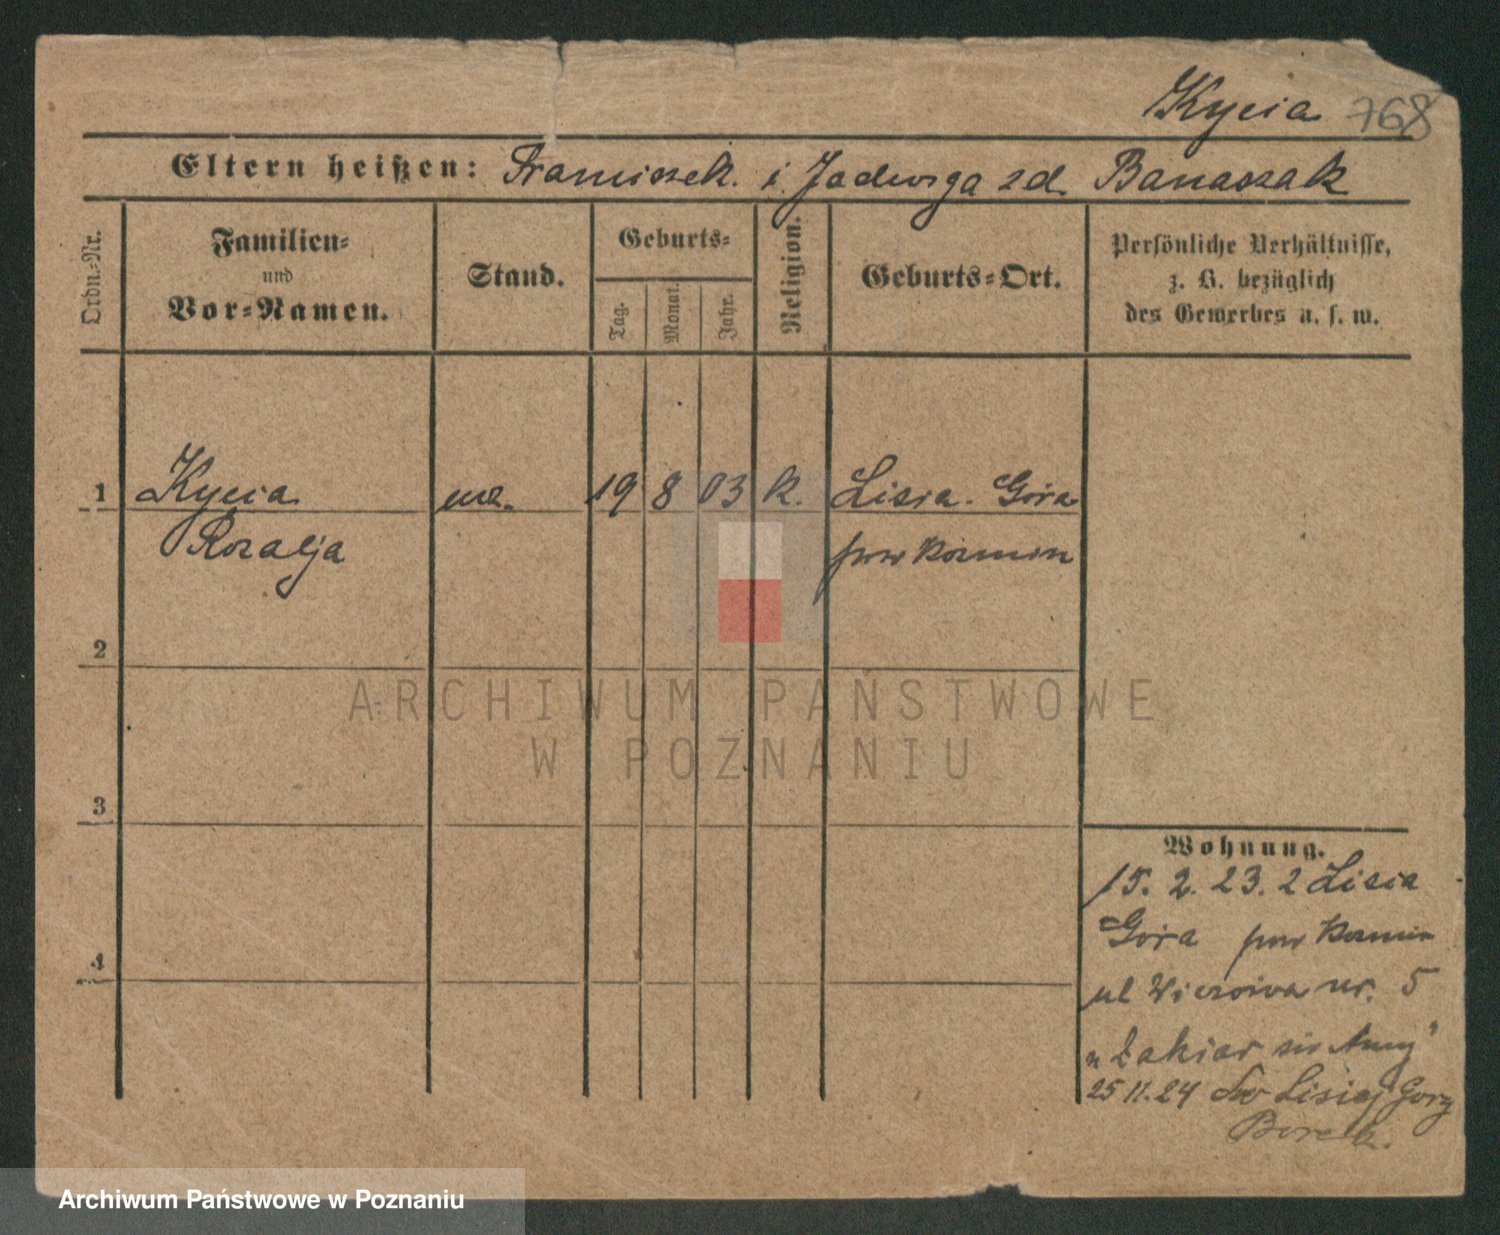 Kycia 768
Eltern heißen: Franciszek i Jadwiga zd. Banaszak
Ordn.-Nr.
Familien-
und
Vor-Namen.
Stand.
Geburts-
Tag.
Monat.
Jahr.
Religion.
Geburts-Ort.
Persönliche Verhältnisse,
z. B. bezüglich
des Gewerbes u. s. w.
1 Kycia 19 8 03 k. Lisia Góra
Rozalja pow
2
3
4
ARCHIWUM PAŃSTWOWE
W POZNANIU
Wohnung.
15. 2. 23. z Lisia
Góra pow
ul nr. 5
25 11. 24 Lisiej Gory
Borek.
Archiwum Państwowe w Poznaniu